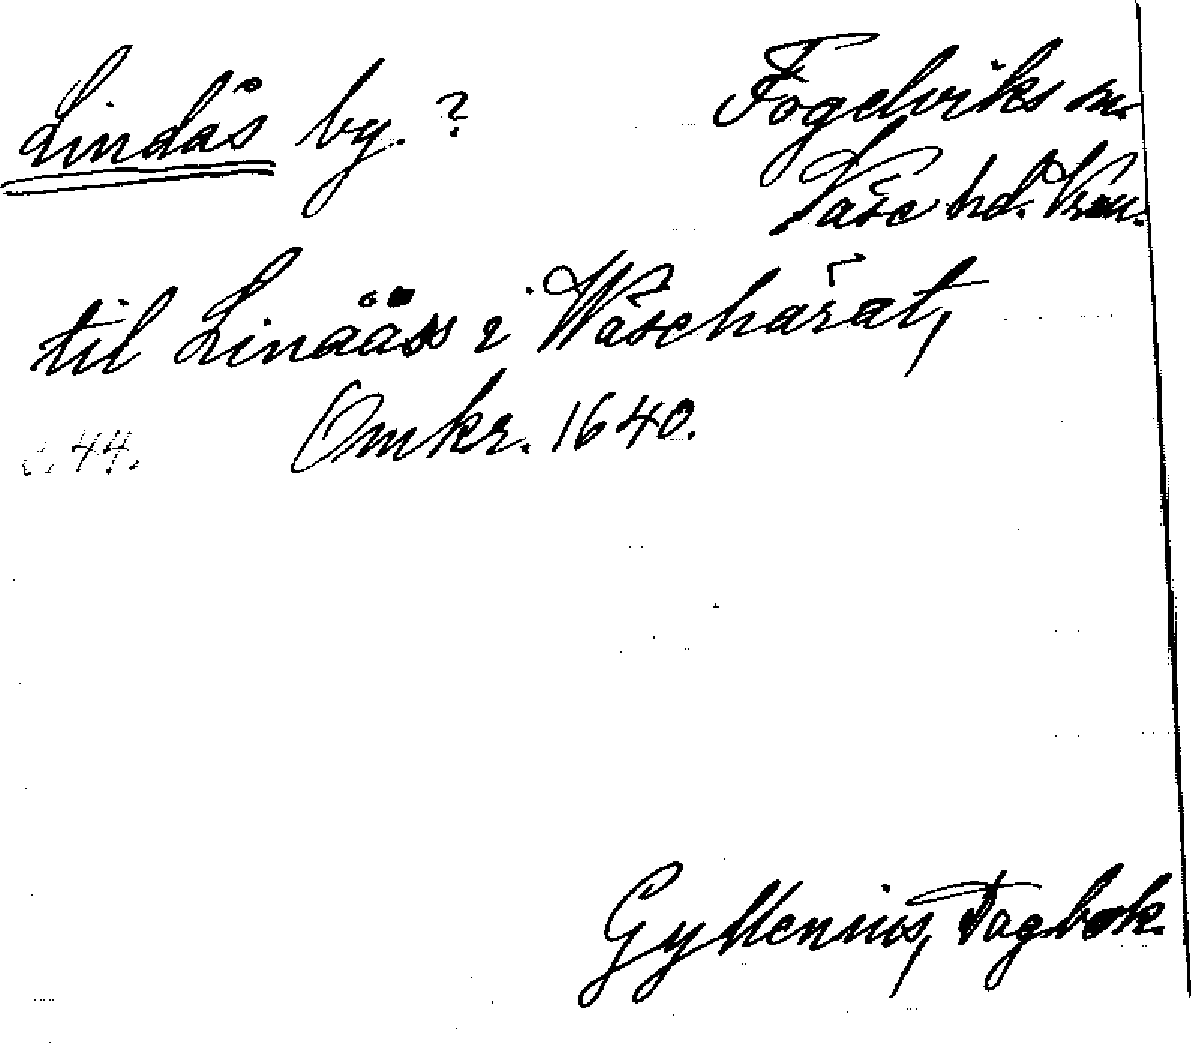 Lindås by. ?
Fogelviks sn.
Väse hd. Vrm.
til Linååss i Wäsehärat,
s. 44. Omkr. 1640.
Gyllenius, Dagbok.